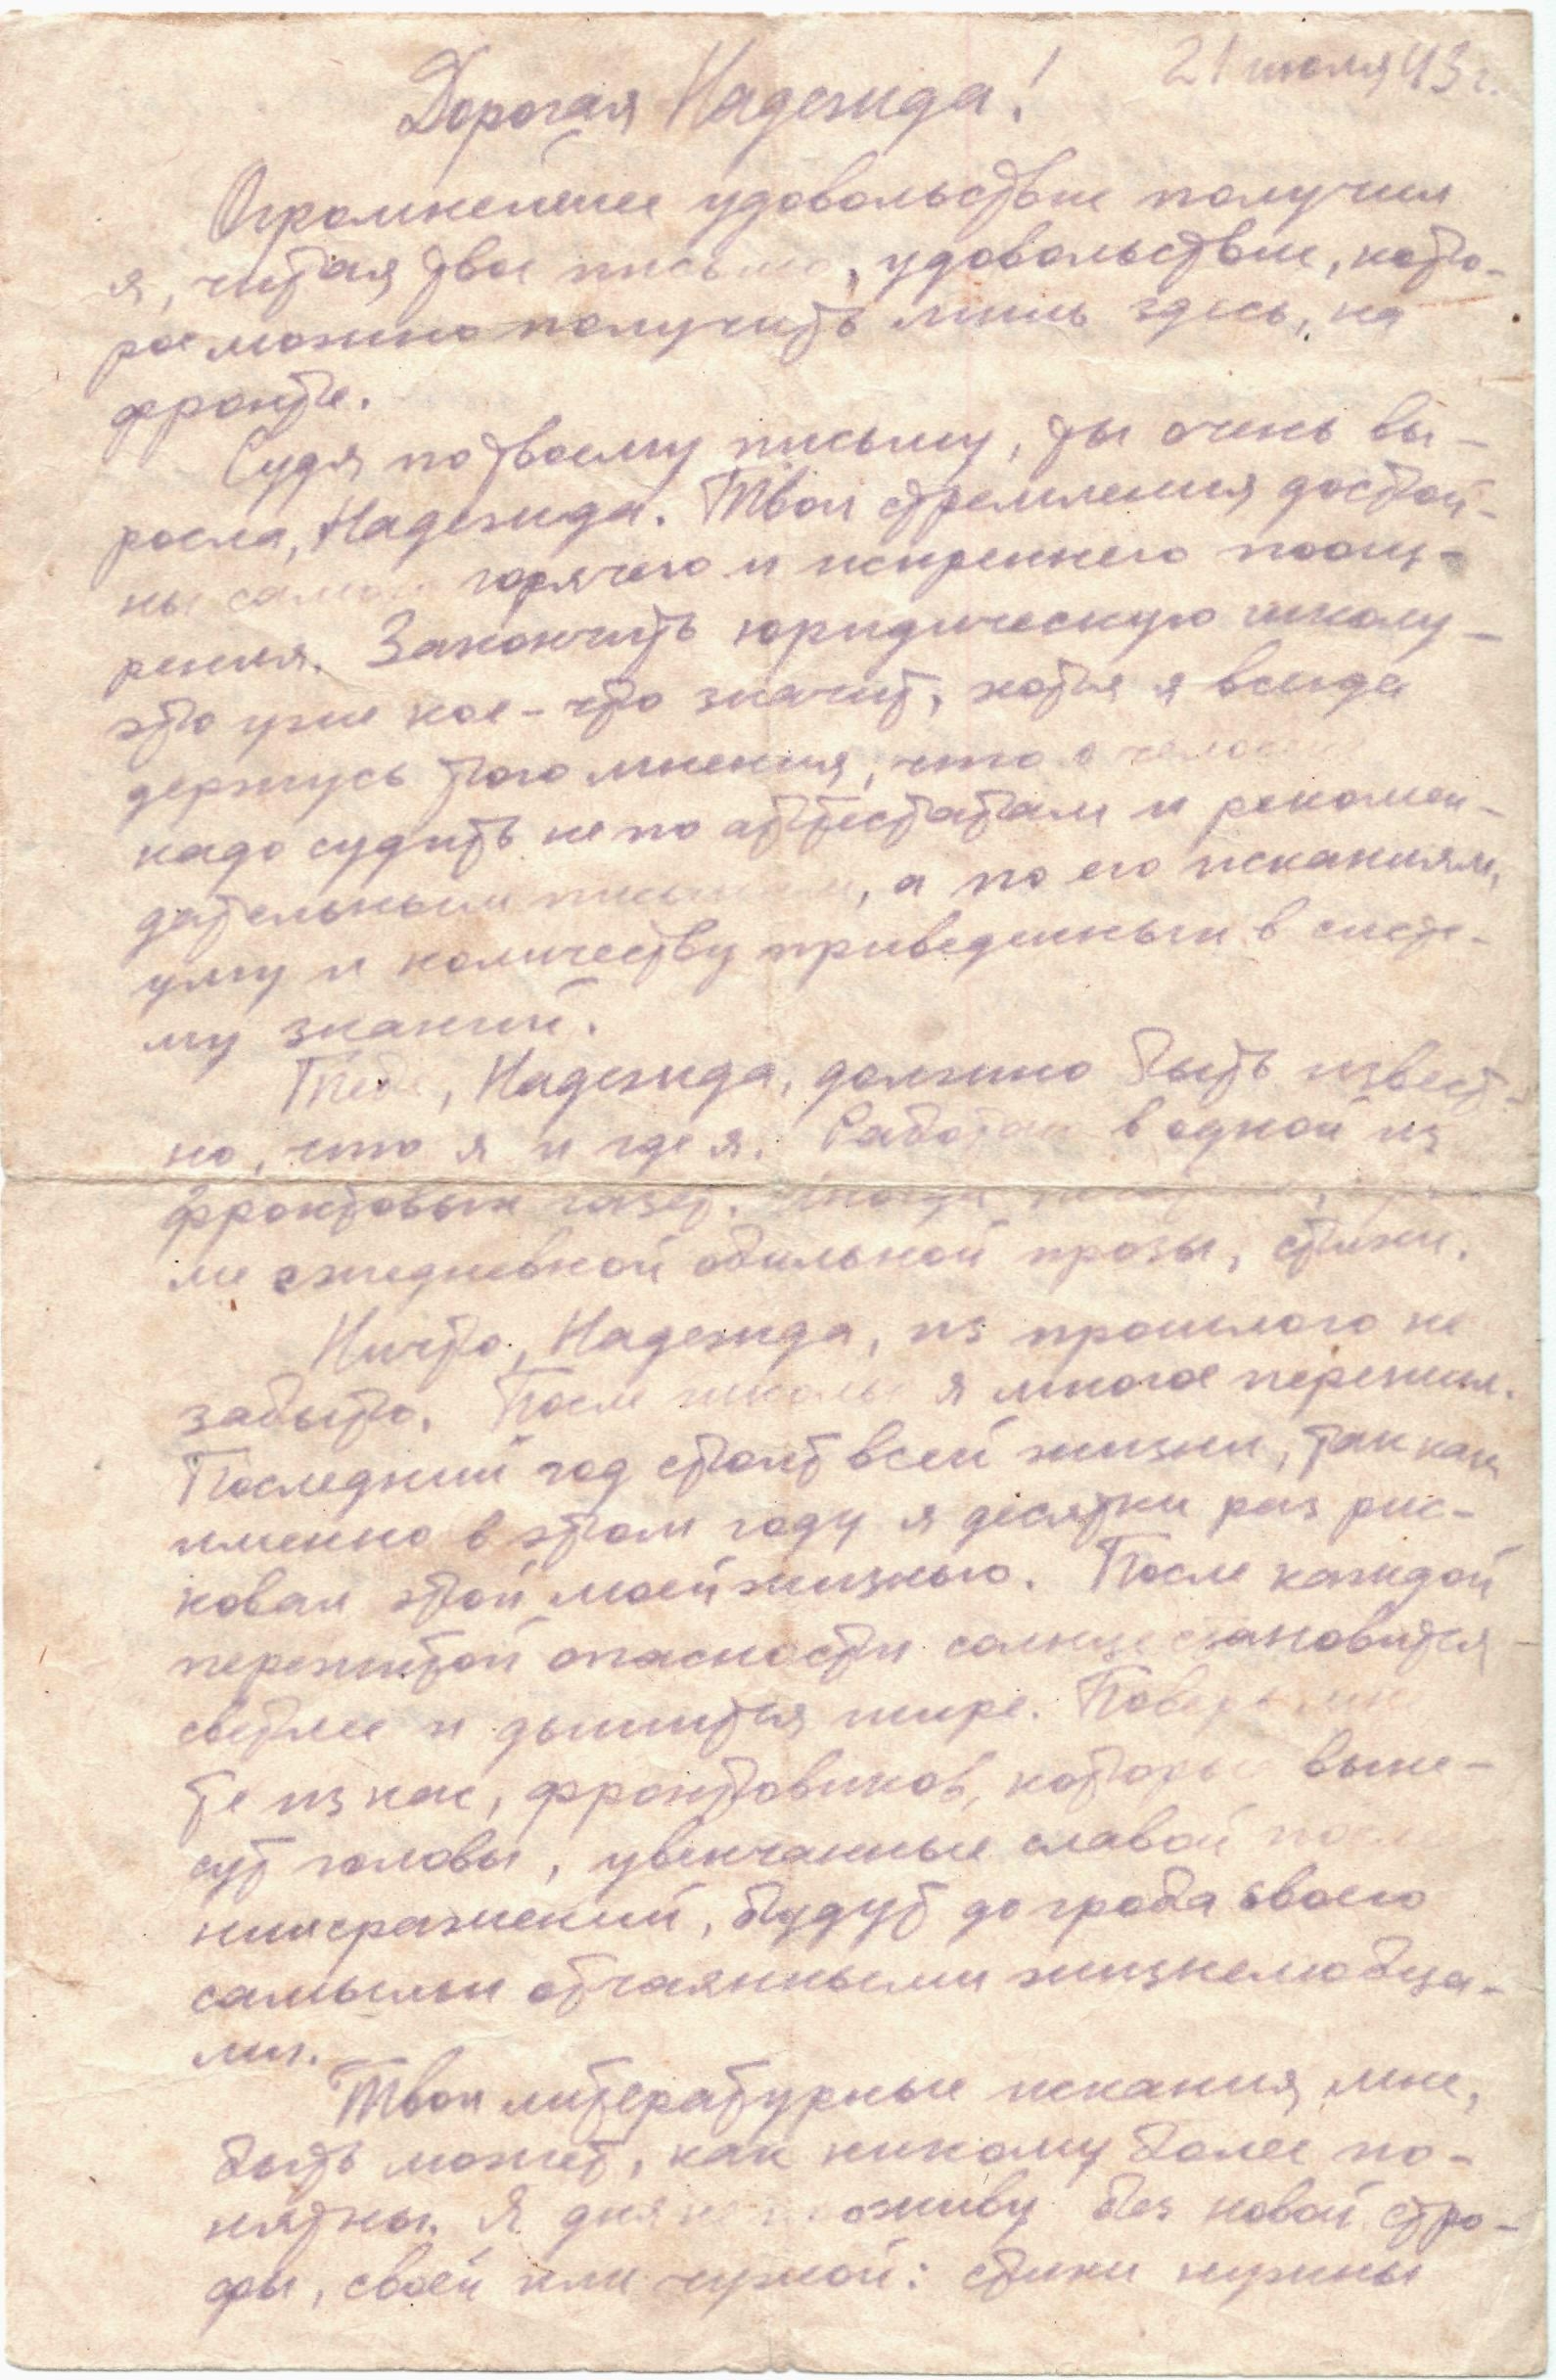 21 июля 43 г.
Дорогая Надежда!
Огромнейшее удовольствие получил
я, читая твое письмо, удовольствие, кото-
рое можно получить лишь здесь, на
фронте.
Судя по твоему письму, ты очень вы-
росла, Надежда. Твои стремления достой-
ны самого горячего и искреннего поощ-
рения. Закончить юридическую школу –
это уже кое-что значит, хотя я всегда
держусь того мнения, что о человеке
надо судить не по аттестатам и рекомен-
дательным письмам, а по его исканиям,
уму и количеству приведенных в систе-
му знаний.
Тебе, Надежда, должно быть извест-
но, что я и где я. Работаю в одной из
фронтовых газет. Иногда
ме ежедневной обильной прозы, стихи.
Ничто, Надежда, из прошлого не
забыто. После школы я многое пережил.
Последний год стоит всей жизни, так как
именно в этом году я десятки раз рис-
ковал этой моей жизнью. После каждой
пережитой опасности солнце становится
светлее и дышится шире. Поверь мне
те из нас, фронтовиков, которые выне-
сут головы, увенчанные славой после
них сражений, будут до гроба своего
самыми отчаянными жизнелюбца-
ми.
Твои литературные искания, мне,
быть может, как никому более по-
нятны. Я дня не проживу без новой стро-
фы, своей или чужой: стихи нужны